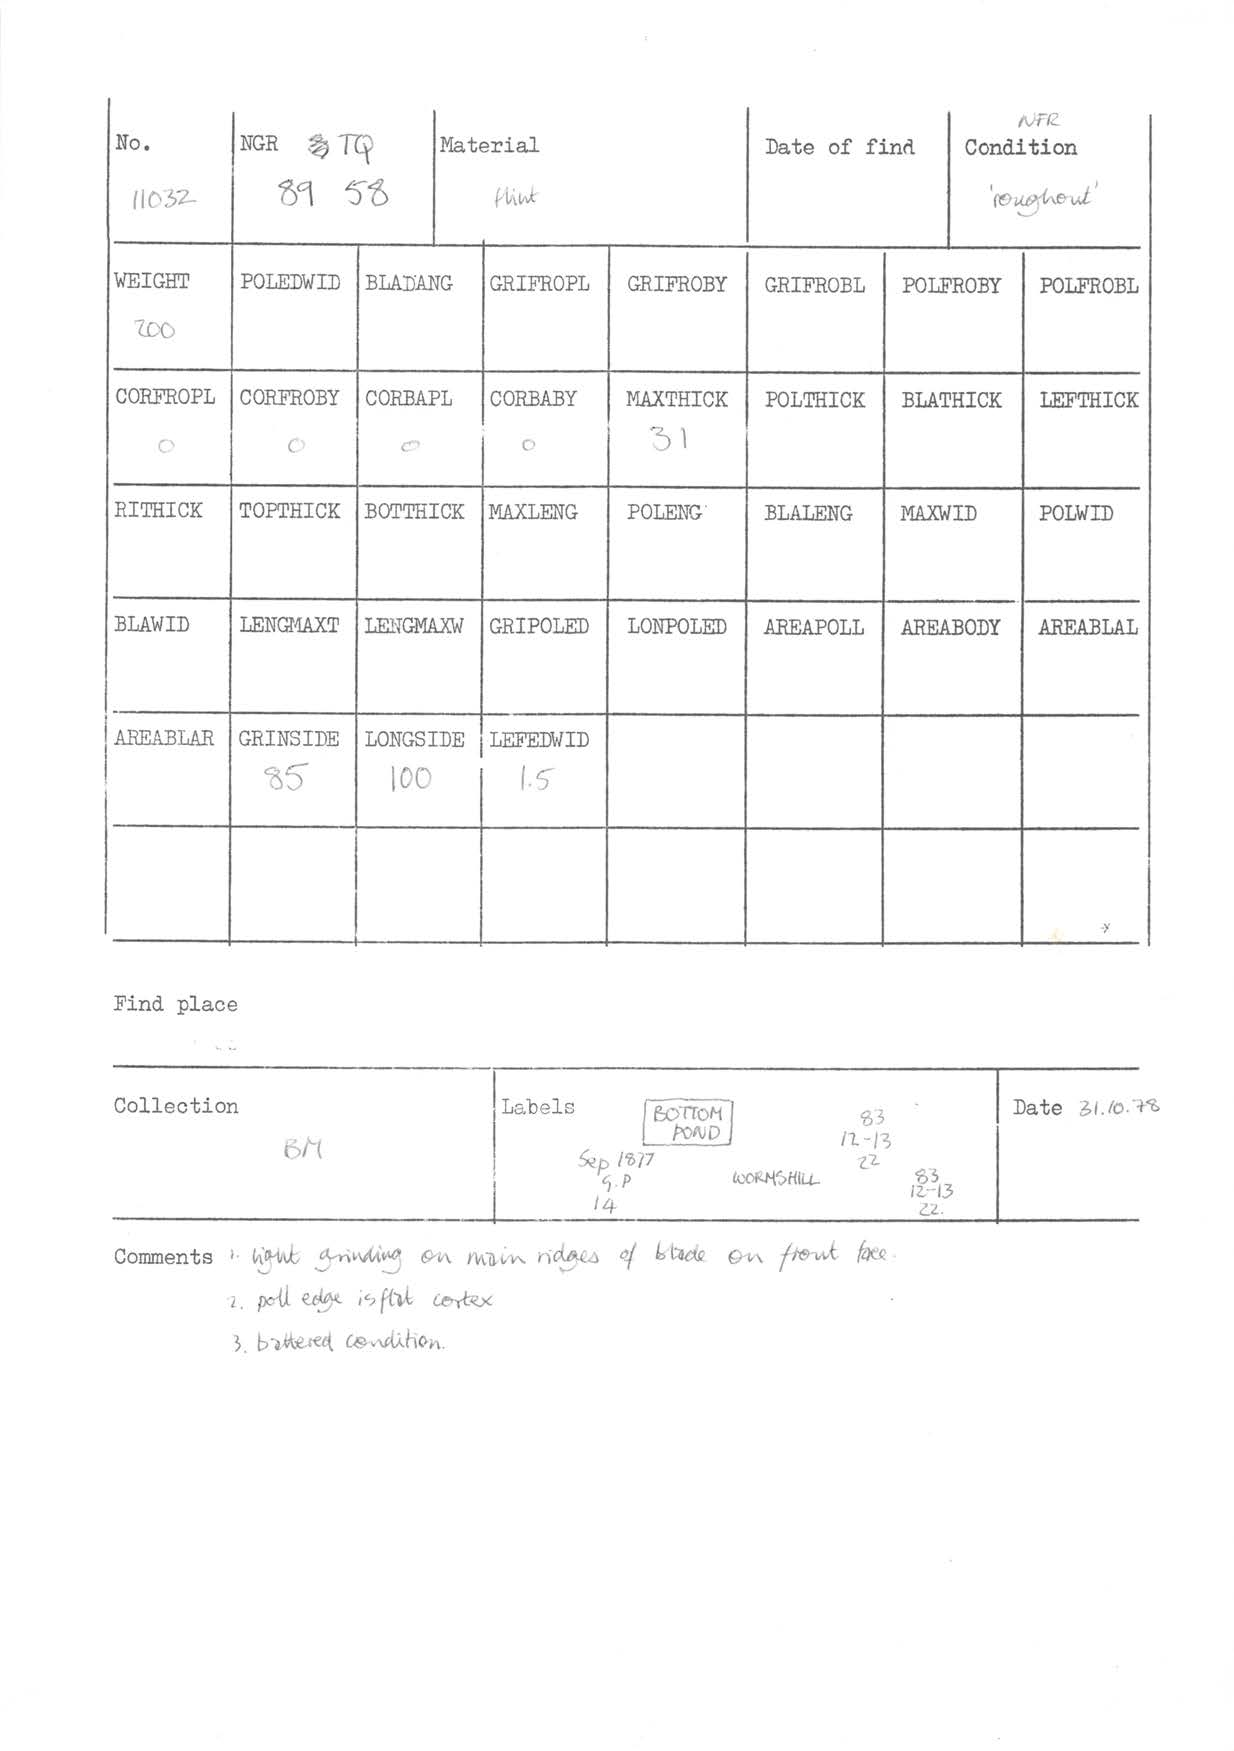 No. NGR TQ Material Date of find NFR Condition
11032 89 58 flint 'roughout'
WEIGHT POLEDWID BLADANG GRIFROPL GRIFROBY GRIFROBL POLFROBY POLFROBL
200
CORFROPL CORFROBY CORBAPL CORBABY MAXTHICK POLTHICK BLATHICK LEFTHICK
0 0 0 0 31
RITHICK TOPTHICK BOTTHICK MAXLENG POLENG BLALENG MAXWID POLWID
BLAWID LENGMAXT LENGMAXW GRIPOLED LONPOLED AREAPOLL AREABODY AREABLAL
AREABLAR GRINSIDE LONGSIDE LEFEDWID
85 100 1.5
Find place
Collection
BM
Labels
BOTTOM
POND
Sep 1877
G.P
14
WORMSHILL
83
12-13
22
83
12-13
22.
Date 31.10.78
Comments 1. light grinding on main ridges of blade on front face.
2. poll edge is flat cortex
3. battered condition.